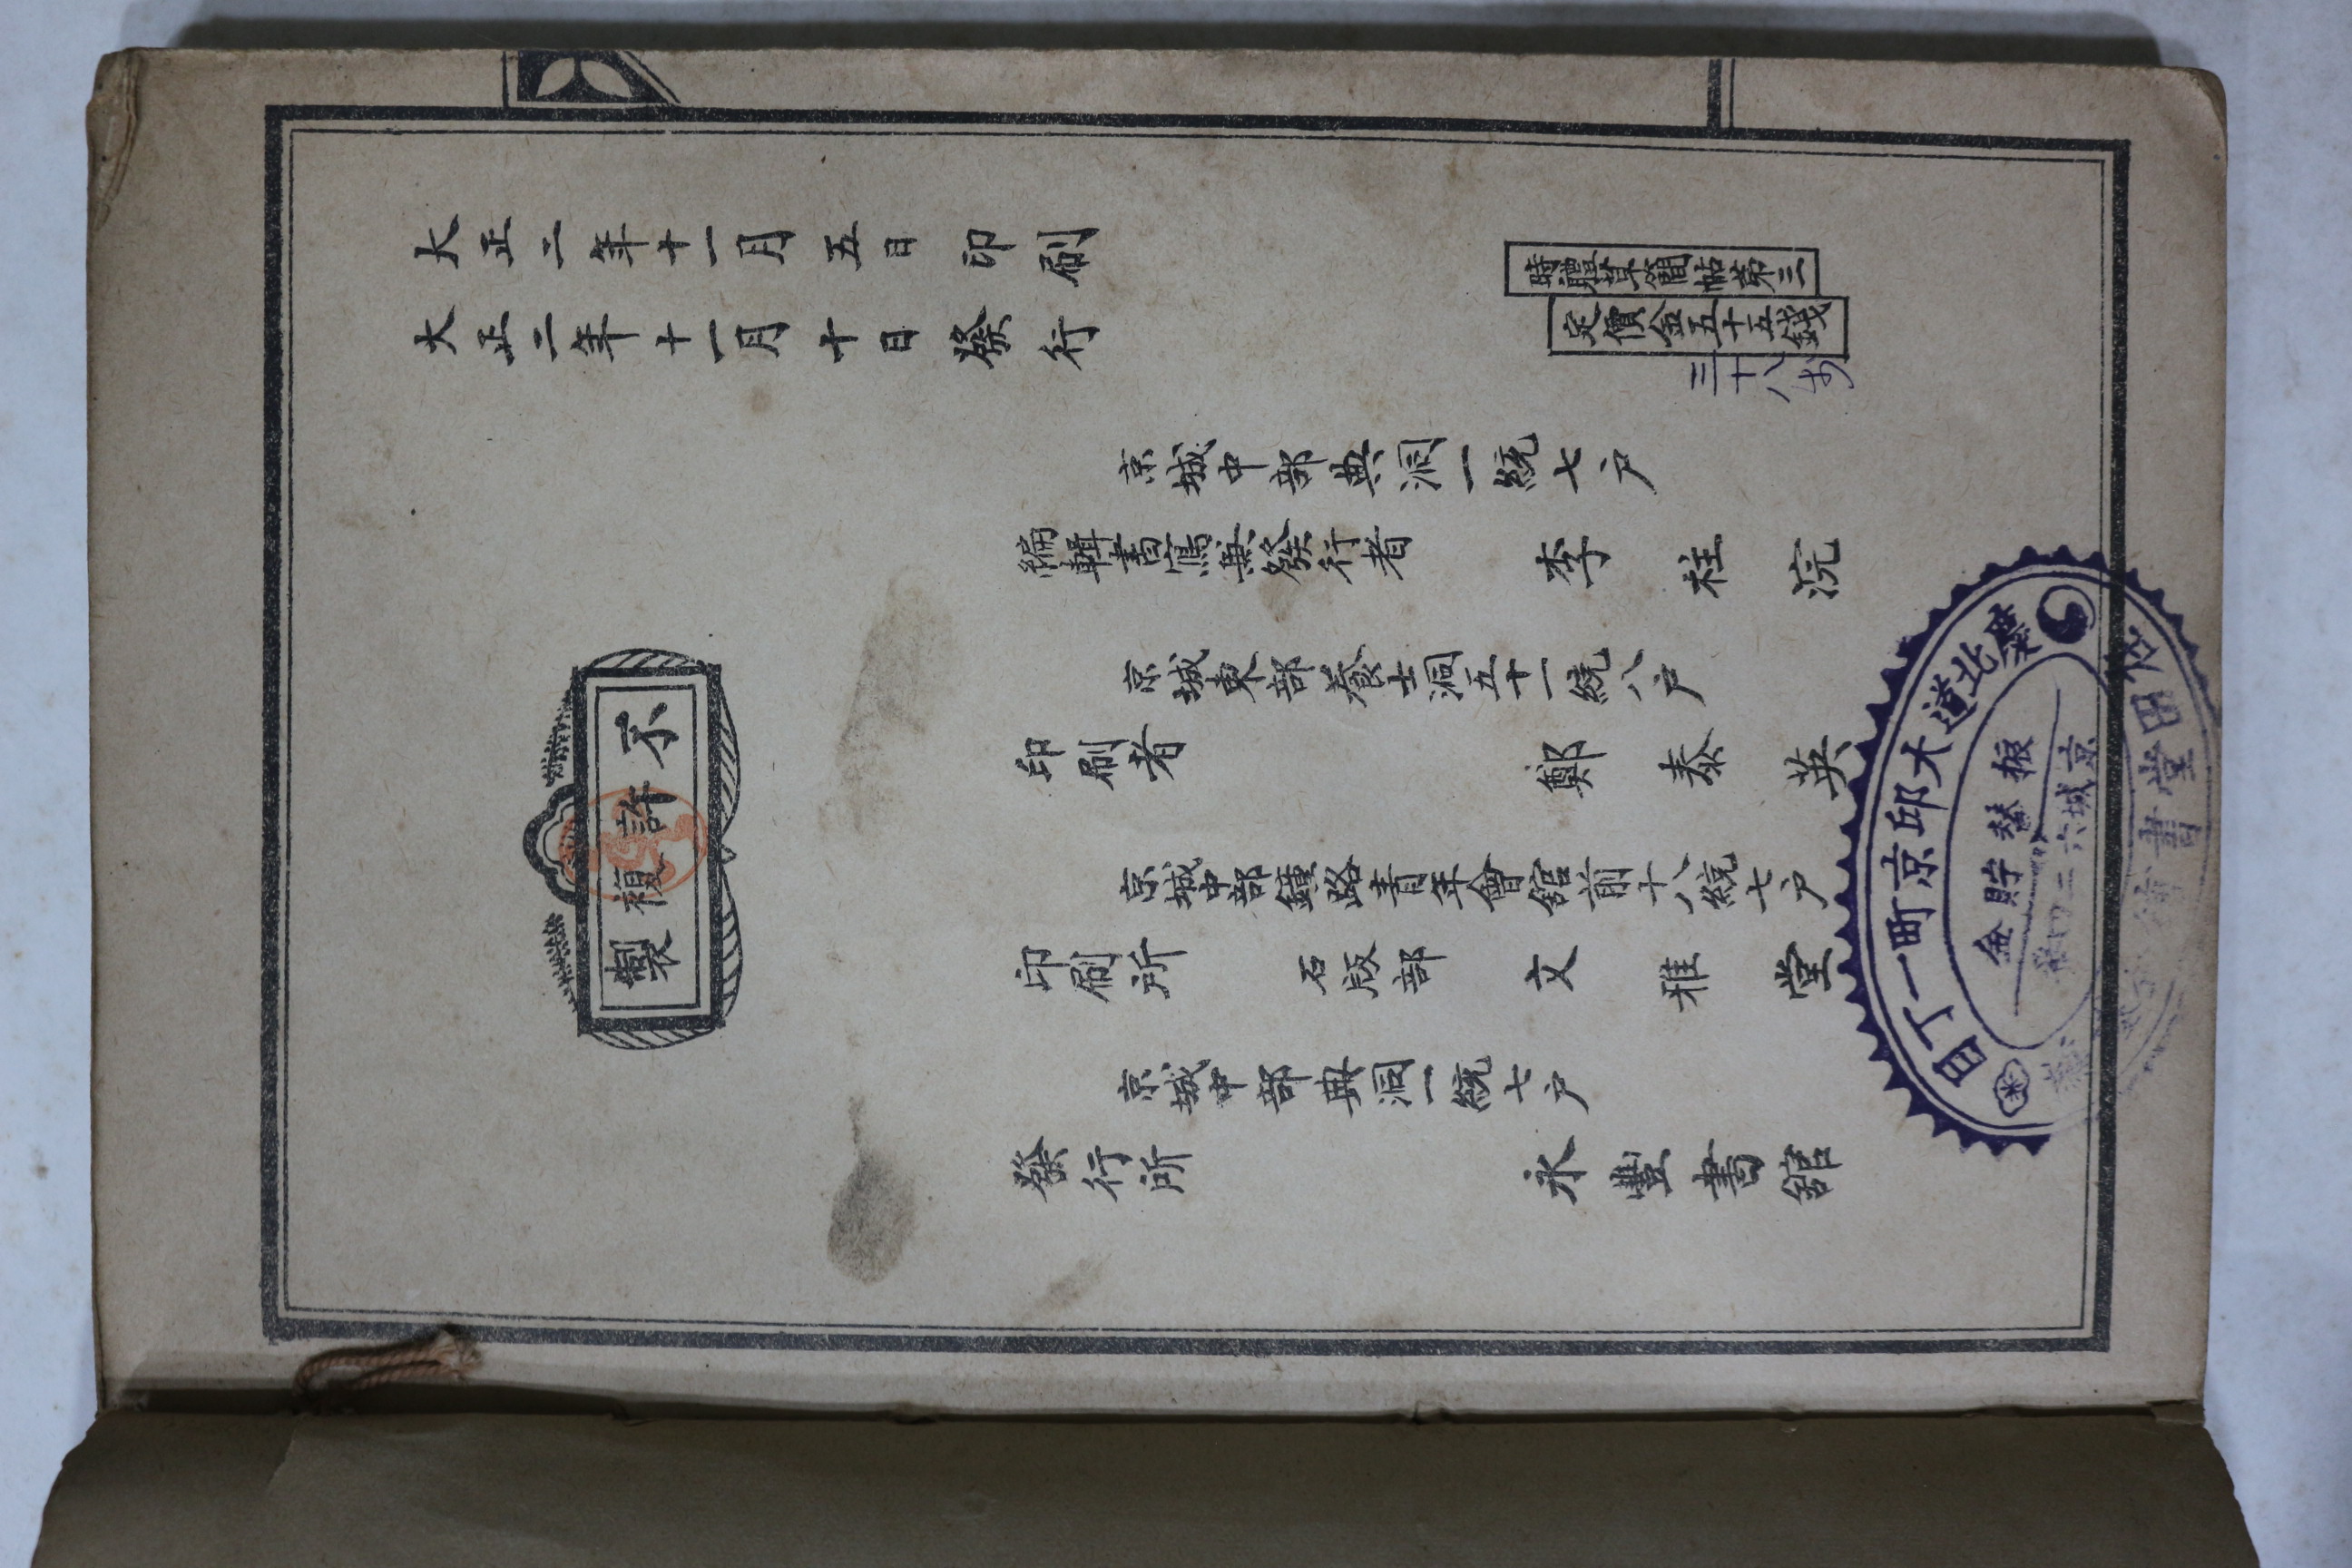 大正二年十一月五日印刷
大正二年十一月十日發行
時體草簡帖第三
定價金五十五錢
三十八
不許複製
京城中部典洞一統七戶
編輯書寫兼發行者 李柱浣
京城東部養士洞五十一統八戶
印刷者 鄭泰英
京城中部鐘路靑年會舘前十八統七戶
印刷所 石版部 文雅堂
京城中部典洞一統七戶
發行所 永豐書舘
慶北道大邱京町一丁目
書堂
振替貯金
京城